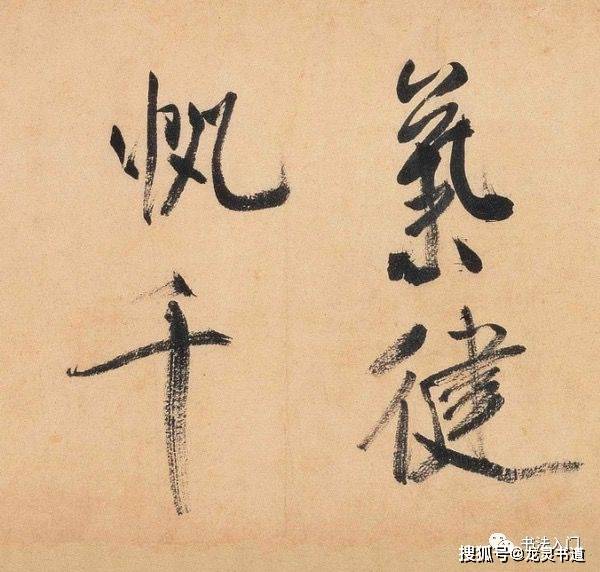 氣健
帆千
书法入门
搜狐号@龙灵书道